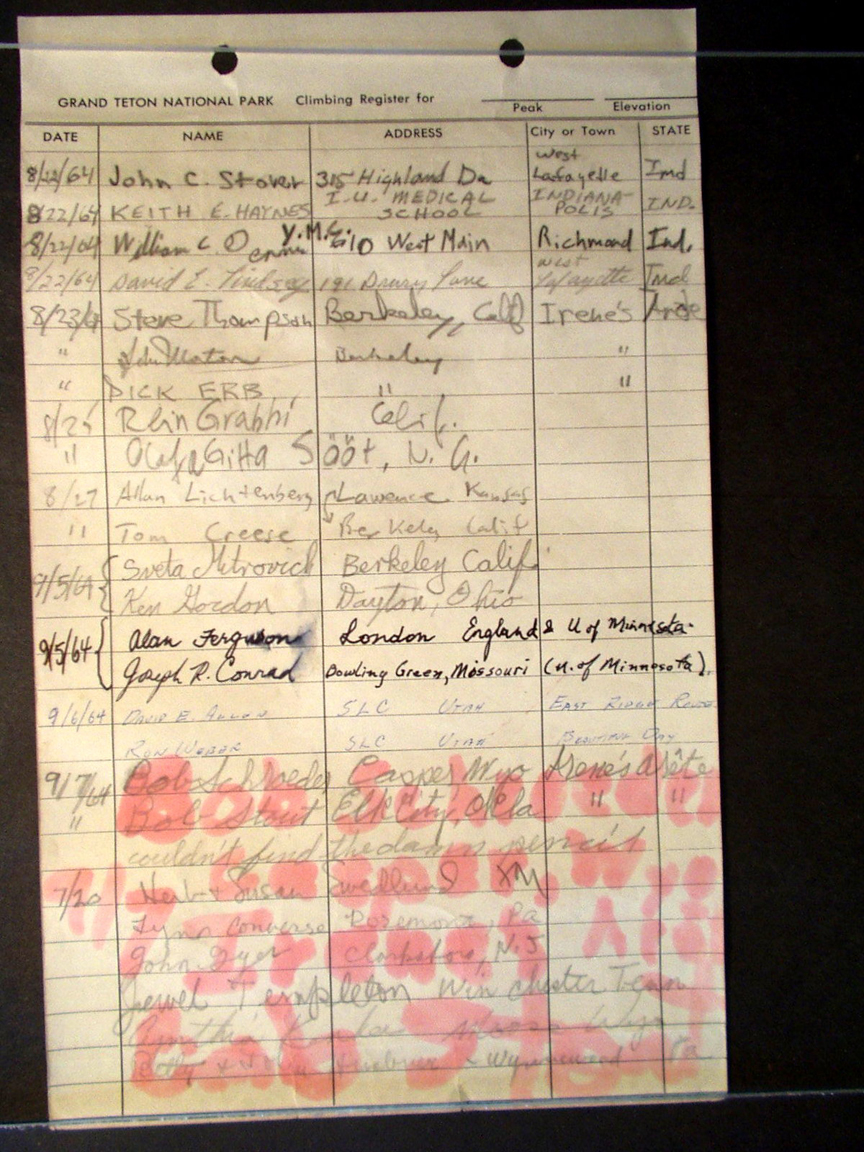 GRAND TETON NATIONAL PARK Climbing Register for
Peak Elevation
DATE NAME ADDRESS City or Town STATE
8/22/64 John C. Stover 315 Highland Dr West Lafayette Ind
8/22/64 KEITH E. HAYNES I.U. MEDICAL SCHOOL INDIANA-POLIS IND.
8/22/64 William C. Y.M.C. 610 West Main Richmond Ind.
8/22/64 David E. Lindsey 191 Drury Lane West Lafayette Ind
8/23/64 Steve Thompson Berkeley, Calif Irene's Arete
" Berkeley "
" DICK ERB " "
8/25 Calif.
" Gitta Sööt, N. G.
8/27 Allan Lichtenberg Lawence Kansas
" Tom Creese Berkeley Calif
9/5/64 Sveta Mitrovich Berkeley Calif.
Ken Gordon Dayton, Ohio
9/5/64 Alan Ferguson London England & U of Minnesota.
Joseph R. Conrad Bowling Green, Missouri (U. of Minnesota).
9/6/64 DAVID E. SLC UTAH EAST RIDGE ROUTE
RON WEBER SLC UTAH BEAUTIFUL DAY
9/7/64 Bob Schroeder Casper, Wyo Irene's Arête
" Bob Stout Elk City, Okla " "
couldn't find the damn pencil
7/20 Herb & Susan Swedlund
Lynn Converse Rosemont, Pa
John Dyer N.J
Jewel Templeton Winchester Tenn
Moose Wyo
Betty & Wynnewood Pa